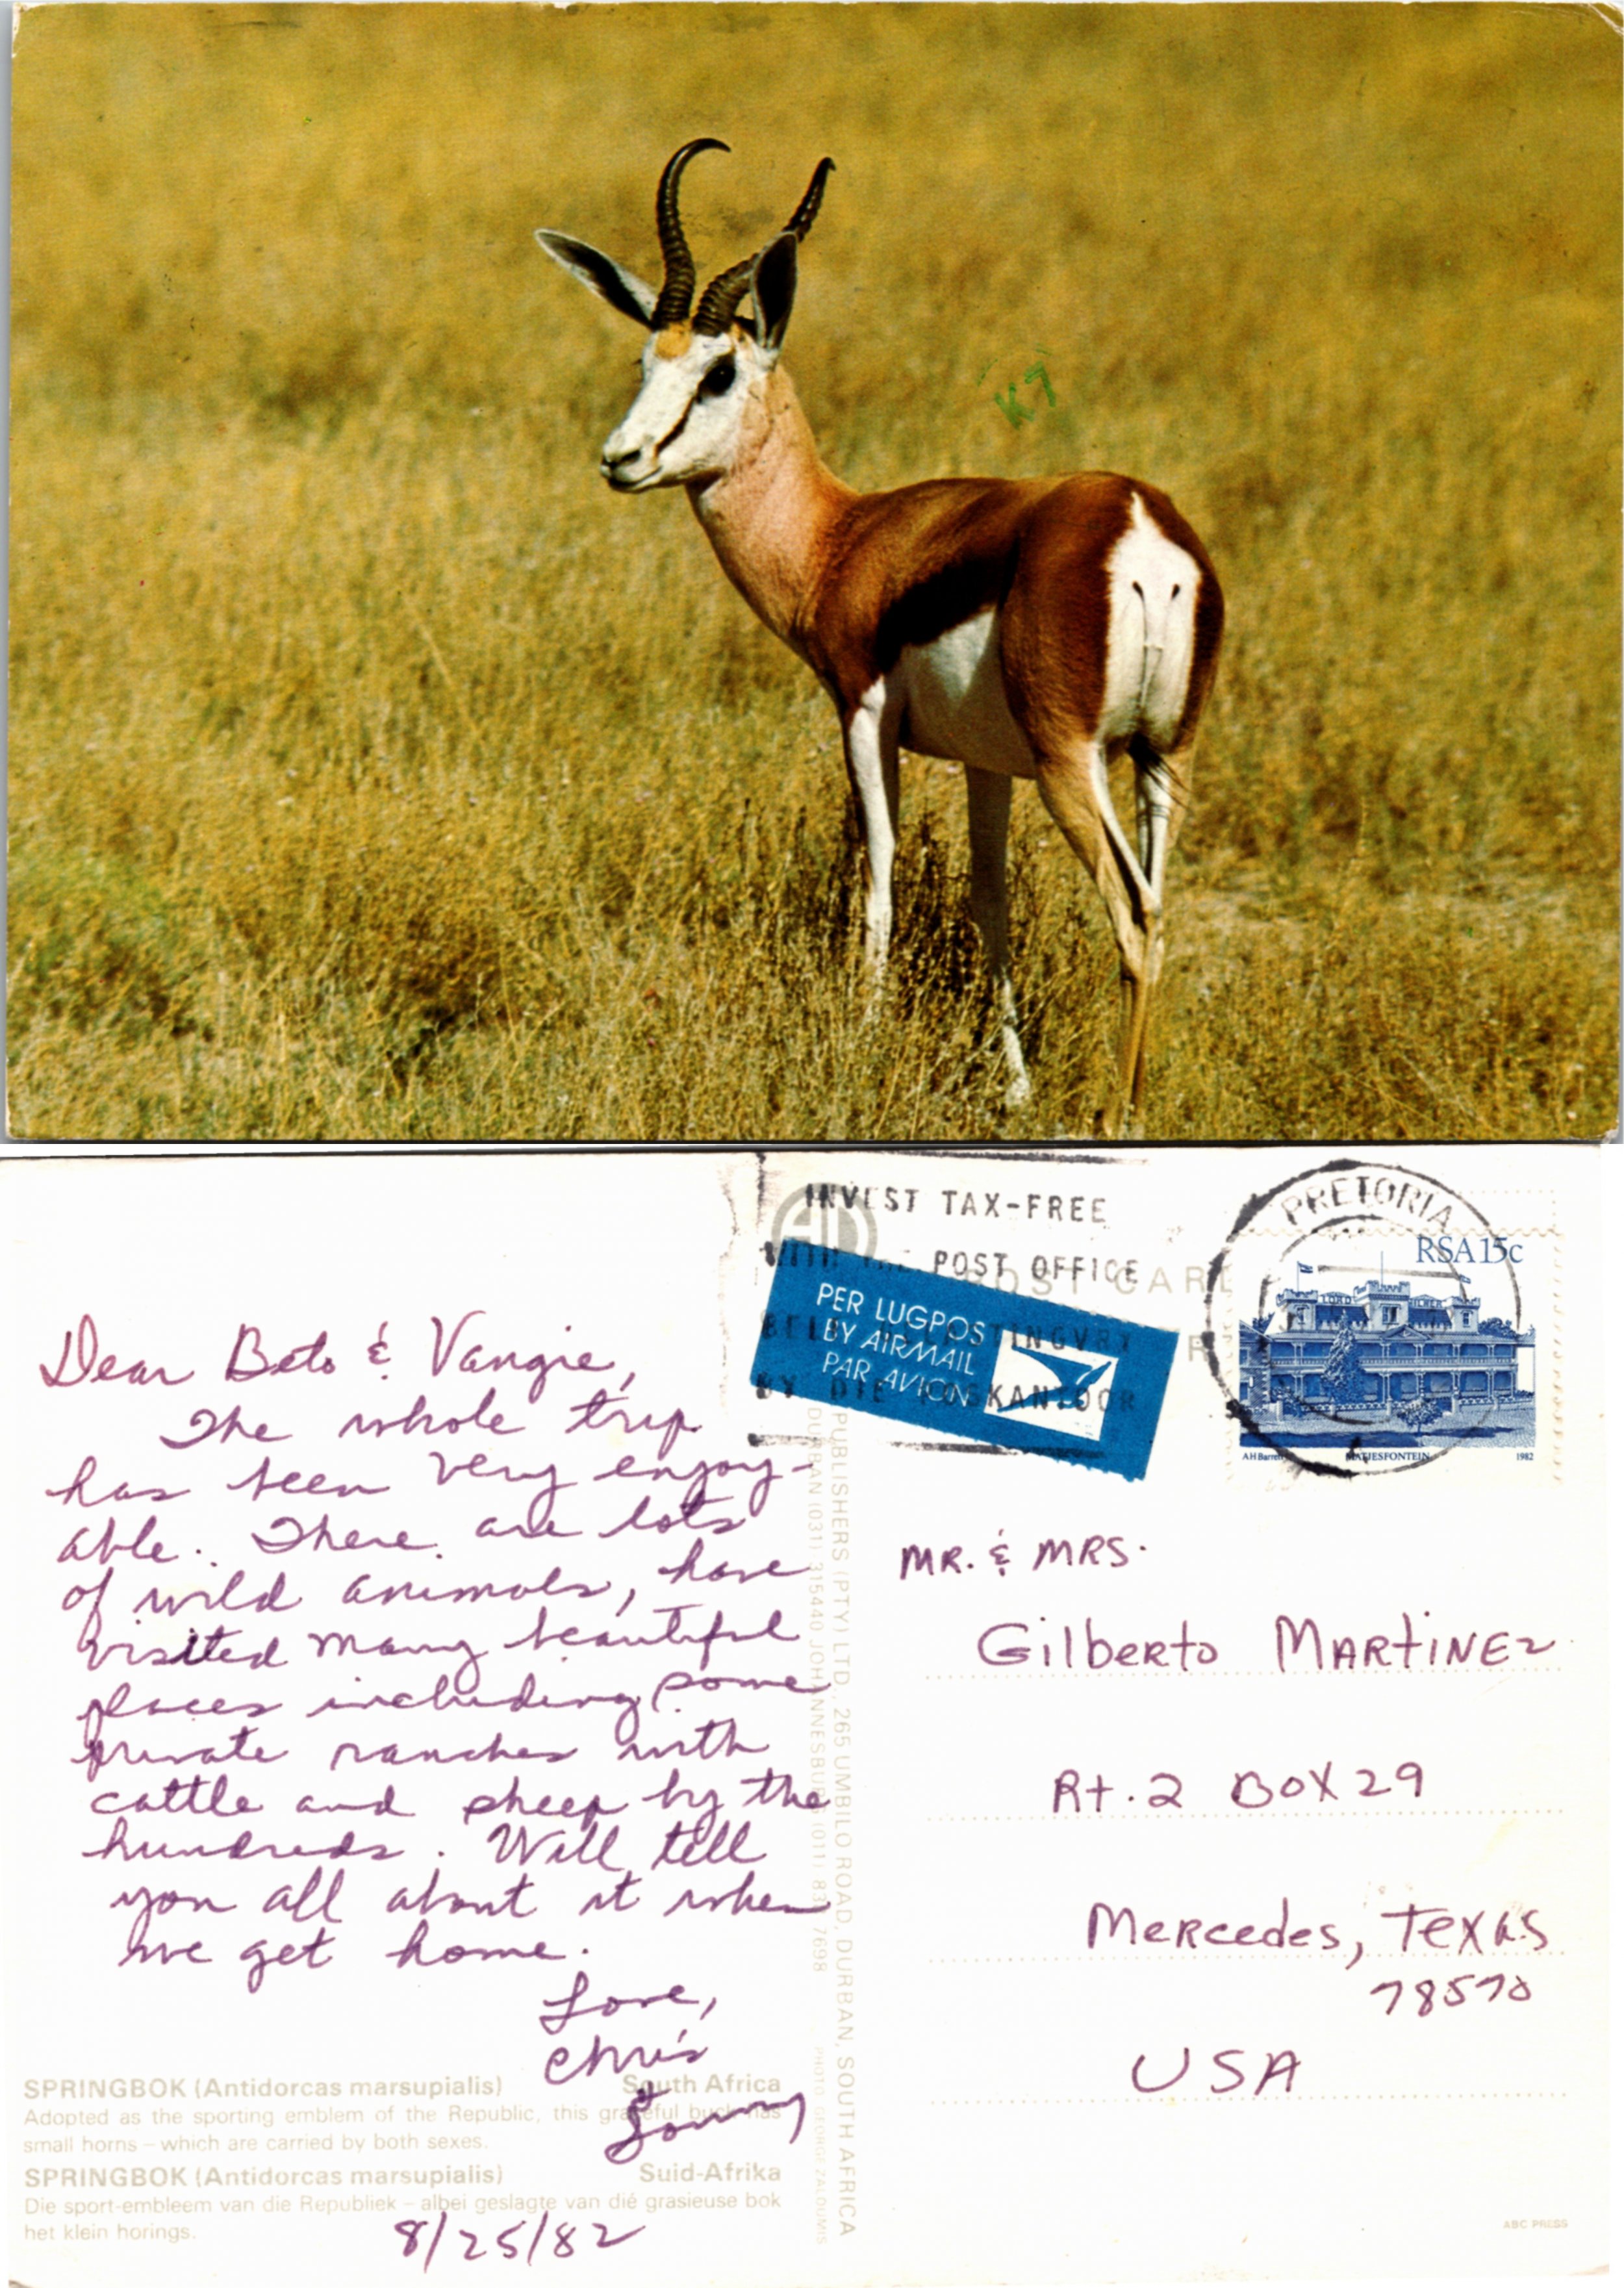 K7
INVEST TAX-FREE
WITH THE POST OFFICE
BELÊ BELASTINGVRY
BY DIE POSKANTOOR
POST CARD
PER LUGPOS
BY AIRMAIL
PAR AVION
PRETORIA
RSA 15c
LORD MILNER
AH Barrett MATJESFONTEIN 1982
Dear Beto & Vangie,
The whole trip
has been very enjoy-
able. There are lots
of wild animals, have
visited many beautiful
places including some
private ranches with
cattle and sheep by the
hundreds. Will tell
you all about it when
we get home.
Love,
Chris
&
Sonny
8/25/82
MR. & MRS.
Gilberto MARTINEZ
Rt. 2 BOX 29
Mercedes, Texas
78570
USA
SPRINGBOK (Antidorcas marsupialis) South Africa
Adopted as the sporting emblem of the Republic, this graceful buck has
small horns – which are carried by both sexes.
SPRINGBOK (Antidorcas marsupialis) Suid-Afrika
Die sport-embleem van die Republiek – albei geslagte van dié grasieuse bok
het klein horings.
PUBLISHERS (PTY) LTD., 265 UMBILO ROAD, DURBAN, SOUTH AFRICA
DURBAN (031) 315440 JOHANNESBURG (011) 837 7698
PHOTO: GEORGE ZALOUMIS
ABC PRESS